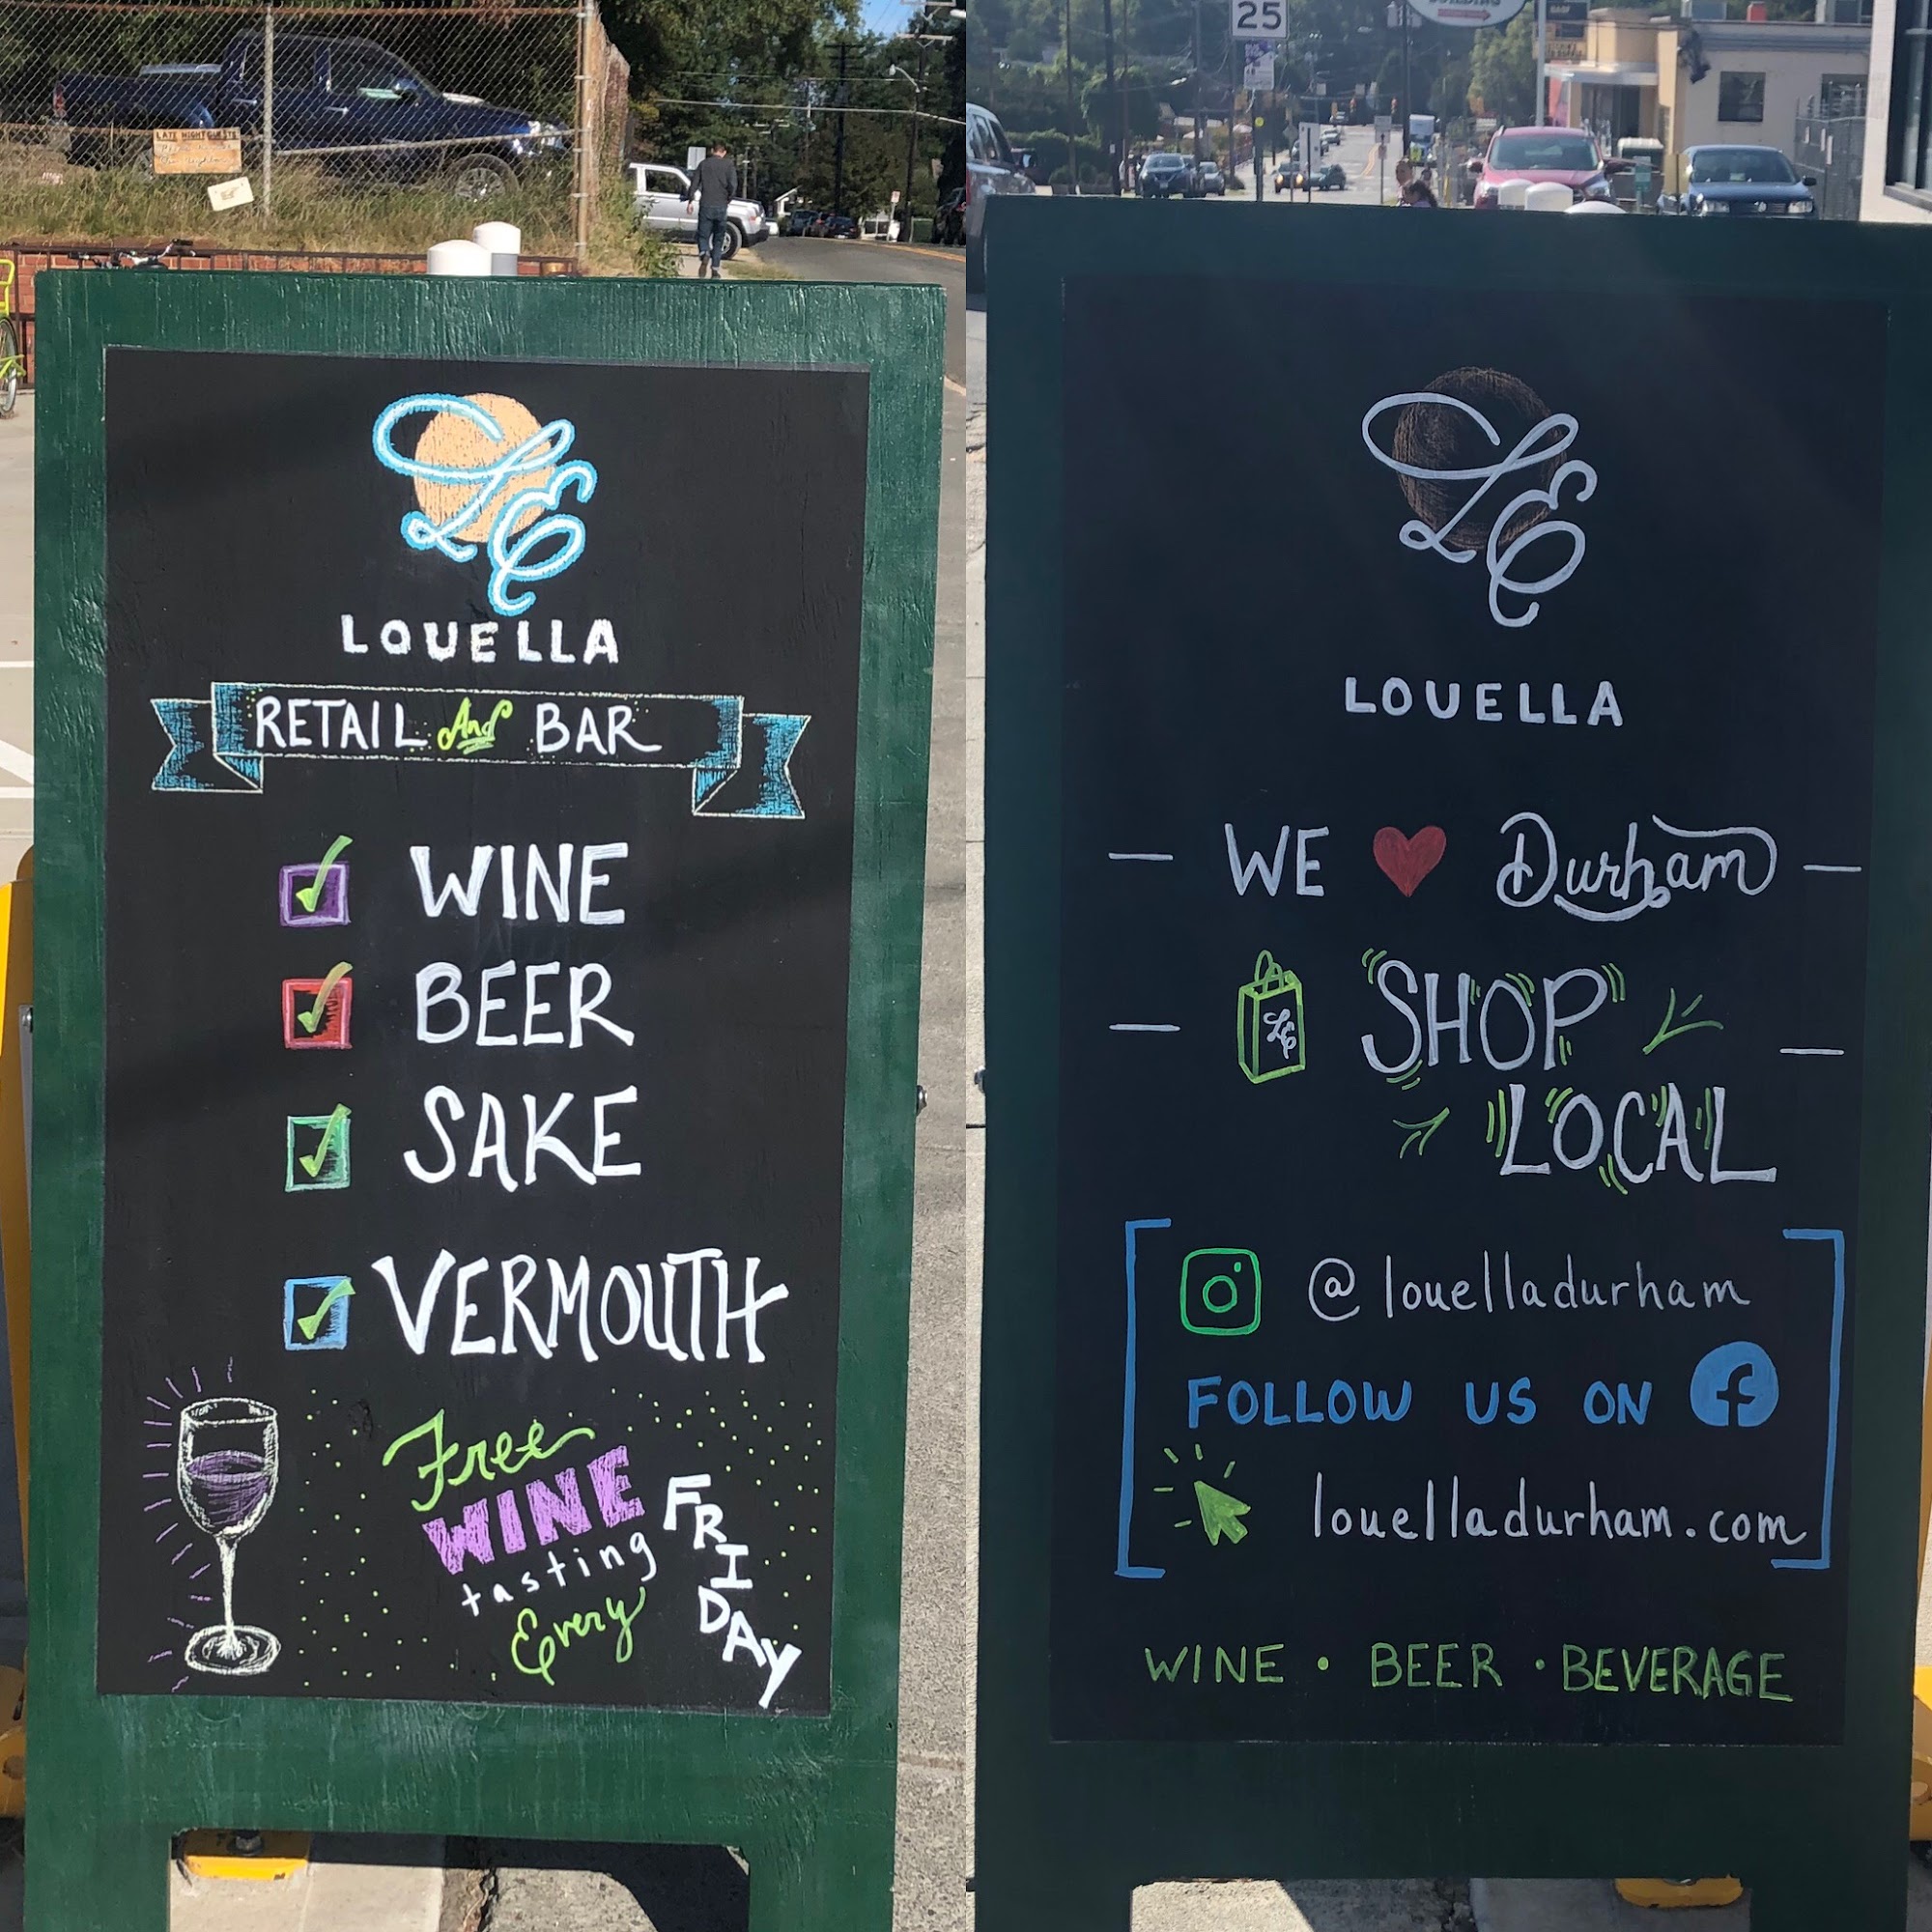 LATE NIGHT GUESTS
LE
LOUELLA
RETAIL And BAR
WINE
BEER
SAKE
VERMOUTH
Free
WINE
tasting
Every
FRIDAY
25
BUILDING
LE
LOUELLA
WE ♥ Durham
LE
SHOP
LOCAL
@louelladurham
FOLLOW US ON f
louelladurham.com
WINE • BEER • BEVERAGE